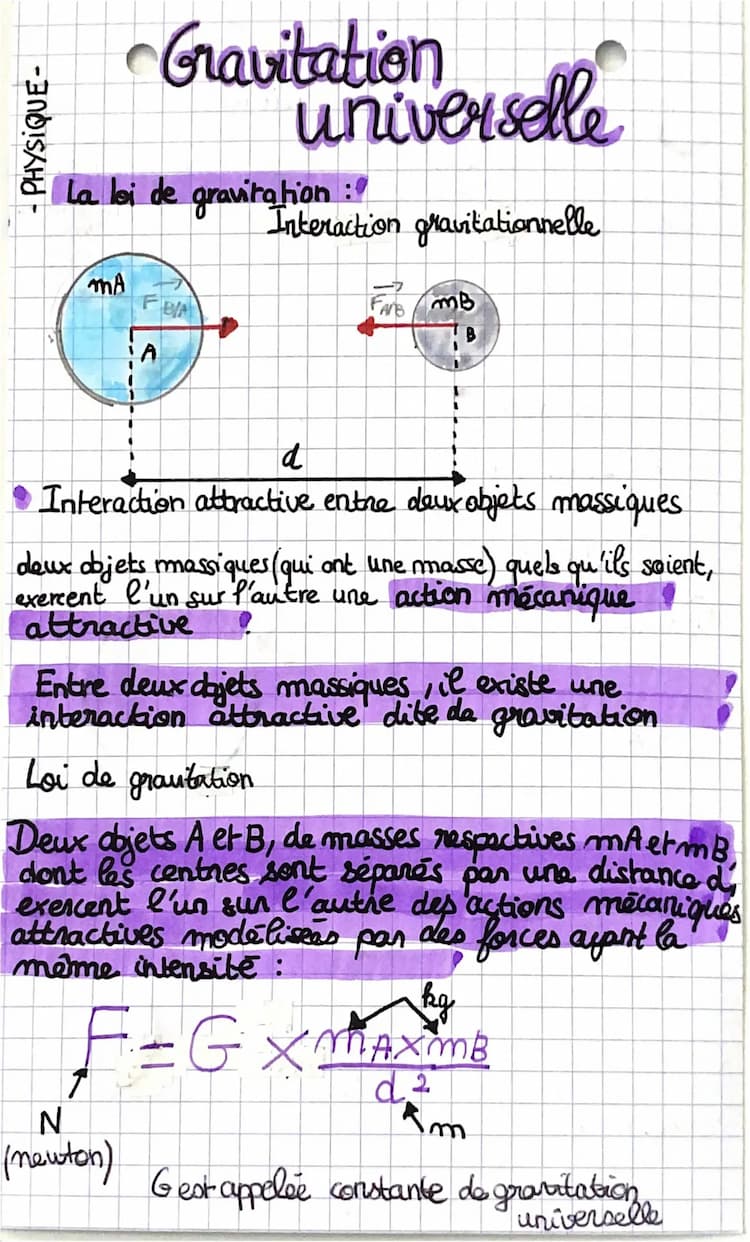 - PHYSIQUE -
Gravitation
universelle
La loi de gravitation :
Interaction gravitationnelle
mA
F B/A
A
F A/B
mB
B
d
Interaction attractive entre deux objets massiques
deux objets massiques (qui ont une masse) quels qu'ils soient,
exercent l'un sur l'autre une action mécanique
attractive
Entre deux objets massiques, il existe une
interaction attractive dite de gravitation
Loi de gravitation
Deux objets A et B, de masses respectives mA et mB,
dont les centres sont séparés par une distance d,
exercent l'un sur l'autre des actions mécaniques
attractives modélisées par des forces ayant la
même intensité :
kg
F = G × mA × mB
d²
N
m
(newton)
G est appelée constante de gravitation
universelle